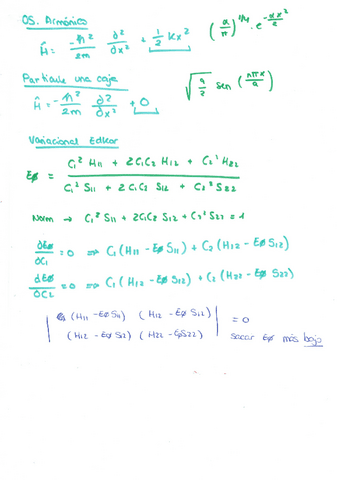 OS. Armónico
Ĥ = -ħ²/2m ∂²/∂x² + 1/2 kx²   (α/π)^1/4 · e^(-αx²/2)
Partícula una caja
Ĥ = -ħ²/2m ∂²/∂x² + 0   √(a/2) sen (nπx/a)
Variacional
Eø = (C₁² H₁₁ + 2C₁C₂ H₁₂ + C₂² H₂₂) / (C₁² S₁₁ + 2C₁C₂ S₁₂ + C₂² S₂₂)
Norm → C₁² S₁₁ + 2C₁C₂ S₁₂ + C₂² S₂₂ = 1
∂Eø/∂C₁ = 0 ⇒ C₁ (H₁₁ - Eø S₁₁) + C₂ (H₁₂ - Eø S₁₂)
∂Eø/∂C₂ = 0 ⇒ C₁ (H₁₂ - Eø S₁₂) + C₂ (H₂₂ - Eø S₂₂)
| (H₁₁ - Eø S₁₁) (H₁₂ - Eø S₁₂) | = 0
| (H₁₂ - Eø S₁₂) (H₂₂ - Eø S₂₂) | sacar Eø más bajo